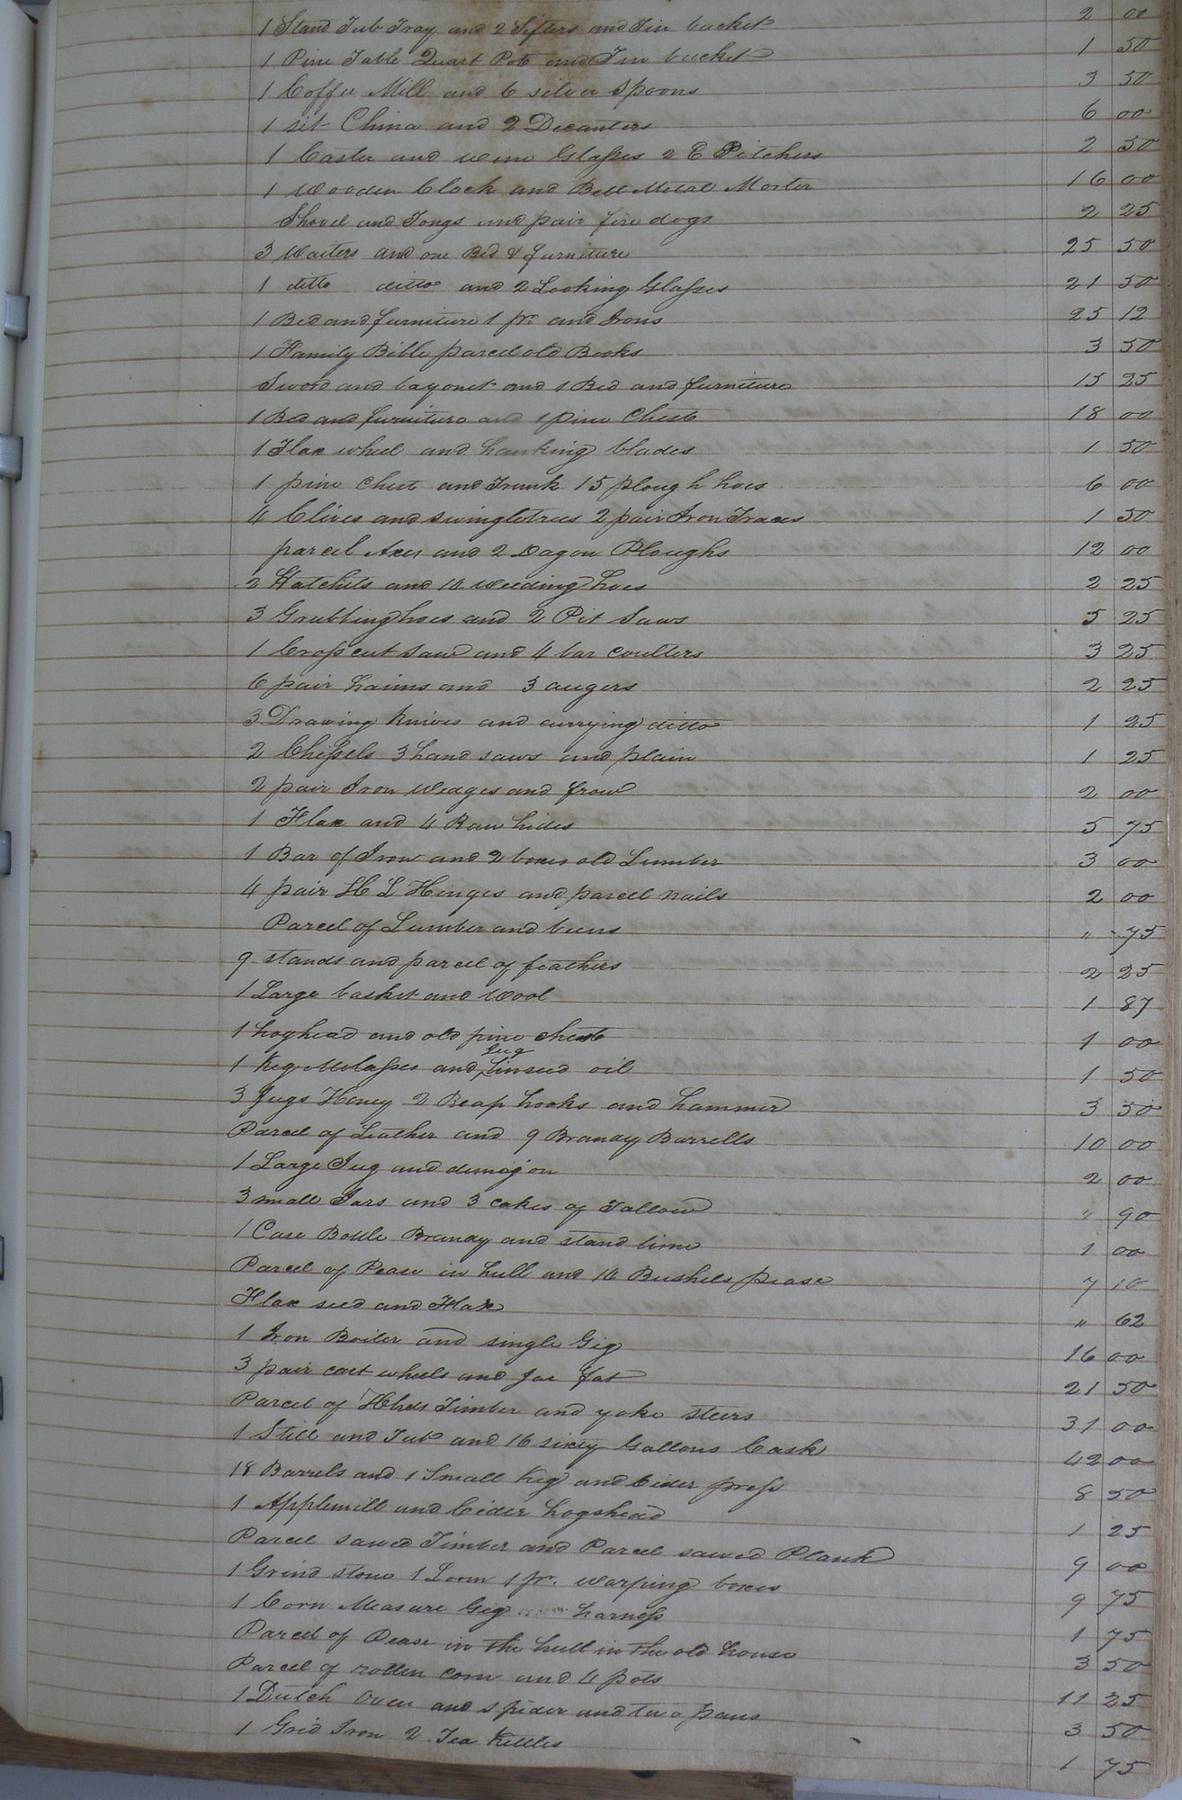 1 Stand Tub Tray and 2 Sifters and Tin bucket 2 00
1 Pine Table Quart Pot and Tin bucket 1 50
1 Coffee Mill and 6 silver Spoons 3 50
1 sit China and 2 Decanters 6 00
1 Caster and wine Glasses 2 E Pitchers 2 50
1 Wooden Clock and Bell Metal Morter 16 00
Shovel and Tongs and pair fire dogs 2 25
3 Waiters and one Bed & furniture 25 50
1 ditto ditto and 2 Looking Glasses 21 50
1 Bed and furniture 1 pr. and Irons 25 12
1 Family Bible parcel old Books 3 50
Sword and bayonet and 1 Bed and furniture 15 25
1 Bed and furniture and 1 pine Chest 18 00
1 Flax wheel and hanking blades 1 50
1 pine Chest and Trunk 15 plough hoes 6 00
4 Clives and swingletrees 2 pair Iron Traces 1 50
parcel Axes and 2 Dagon Ploughs 12 00
2 Hatchets and 10 weeding hoes 2 25
3 Grubbing hoes and 2 Pit Saws 5 25
1 Cross cut saw and 4 bar coulters 3 25
6 pair haims and 3 augers 2 25
3 Drawing knives and currying ditto 1 25
2 Chissels 3 hand saws and plain 1 25
2 pair Iron Wedges and frow 2 00
1 Flax and 4 Raw hides 5 75
1 Bar of Iron and 2 boxes old Lumber 3 00
4 pair H L Hinges and parcel nails 2 00
Parcel of Lumber and beens " 75
9 stands and parcel of feathers 2 25
1 Large basket and Wool 1 87
1 hoghead and old pine chest 1 00
1 Keg Molasses and Jug Linseed oil 1 50
3 Jugs Honey 2 Reap hooks and hammer 3 50
Parcel of Leather and 9 Brandy Barrells 10 00
1 Large Jug and demojon 2 00
3 small Jars and 3 cakes of Tallow " 90
1 Case Bottle Brandy and stand lime 1 00
Parcel of Pease in hull and 10 Bushels pease 7 10
Flax seed and Flax " 62
1 Iron Boiler and single Gig 16 00
3 pair cart wheels and fat 21 50
Parcel of Timber and yoke steers 31 00
1 Still and Tub and 16 sixty Gallons Cask 42 00
18 Barrels and 1 Small Keg and Cider press 8 50
1 Applemill and Cider hogshead 1 25
Parcel sawed Timber and Parcel sawed Plank 9 00
1 Grind stone 1 Loom 1 pr. warping boxes 9 75
1 Corn Measure Gig harness 1 75
Parcel of Pease in the hull in the old house 3 50
Parcel of rotten corn and 4 pots 11 25
1 Dutch Oven and spider and two pans 3 50
1 Grid Iron 2 Tea Kettles 1 75